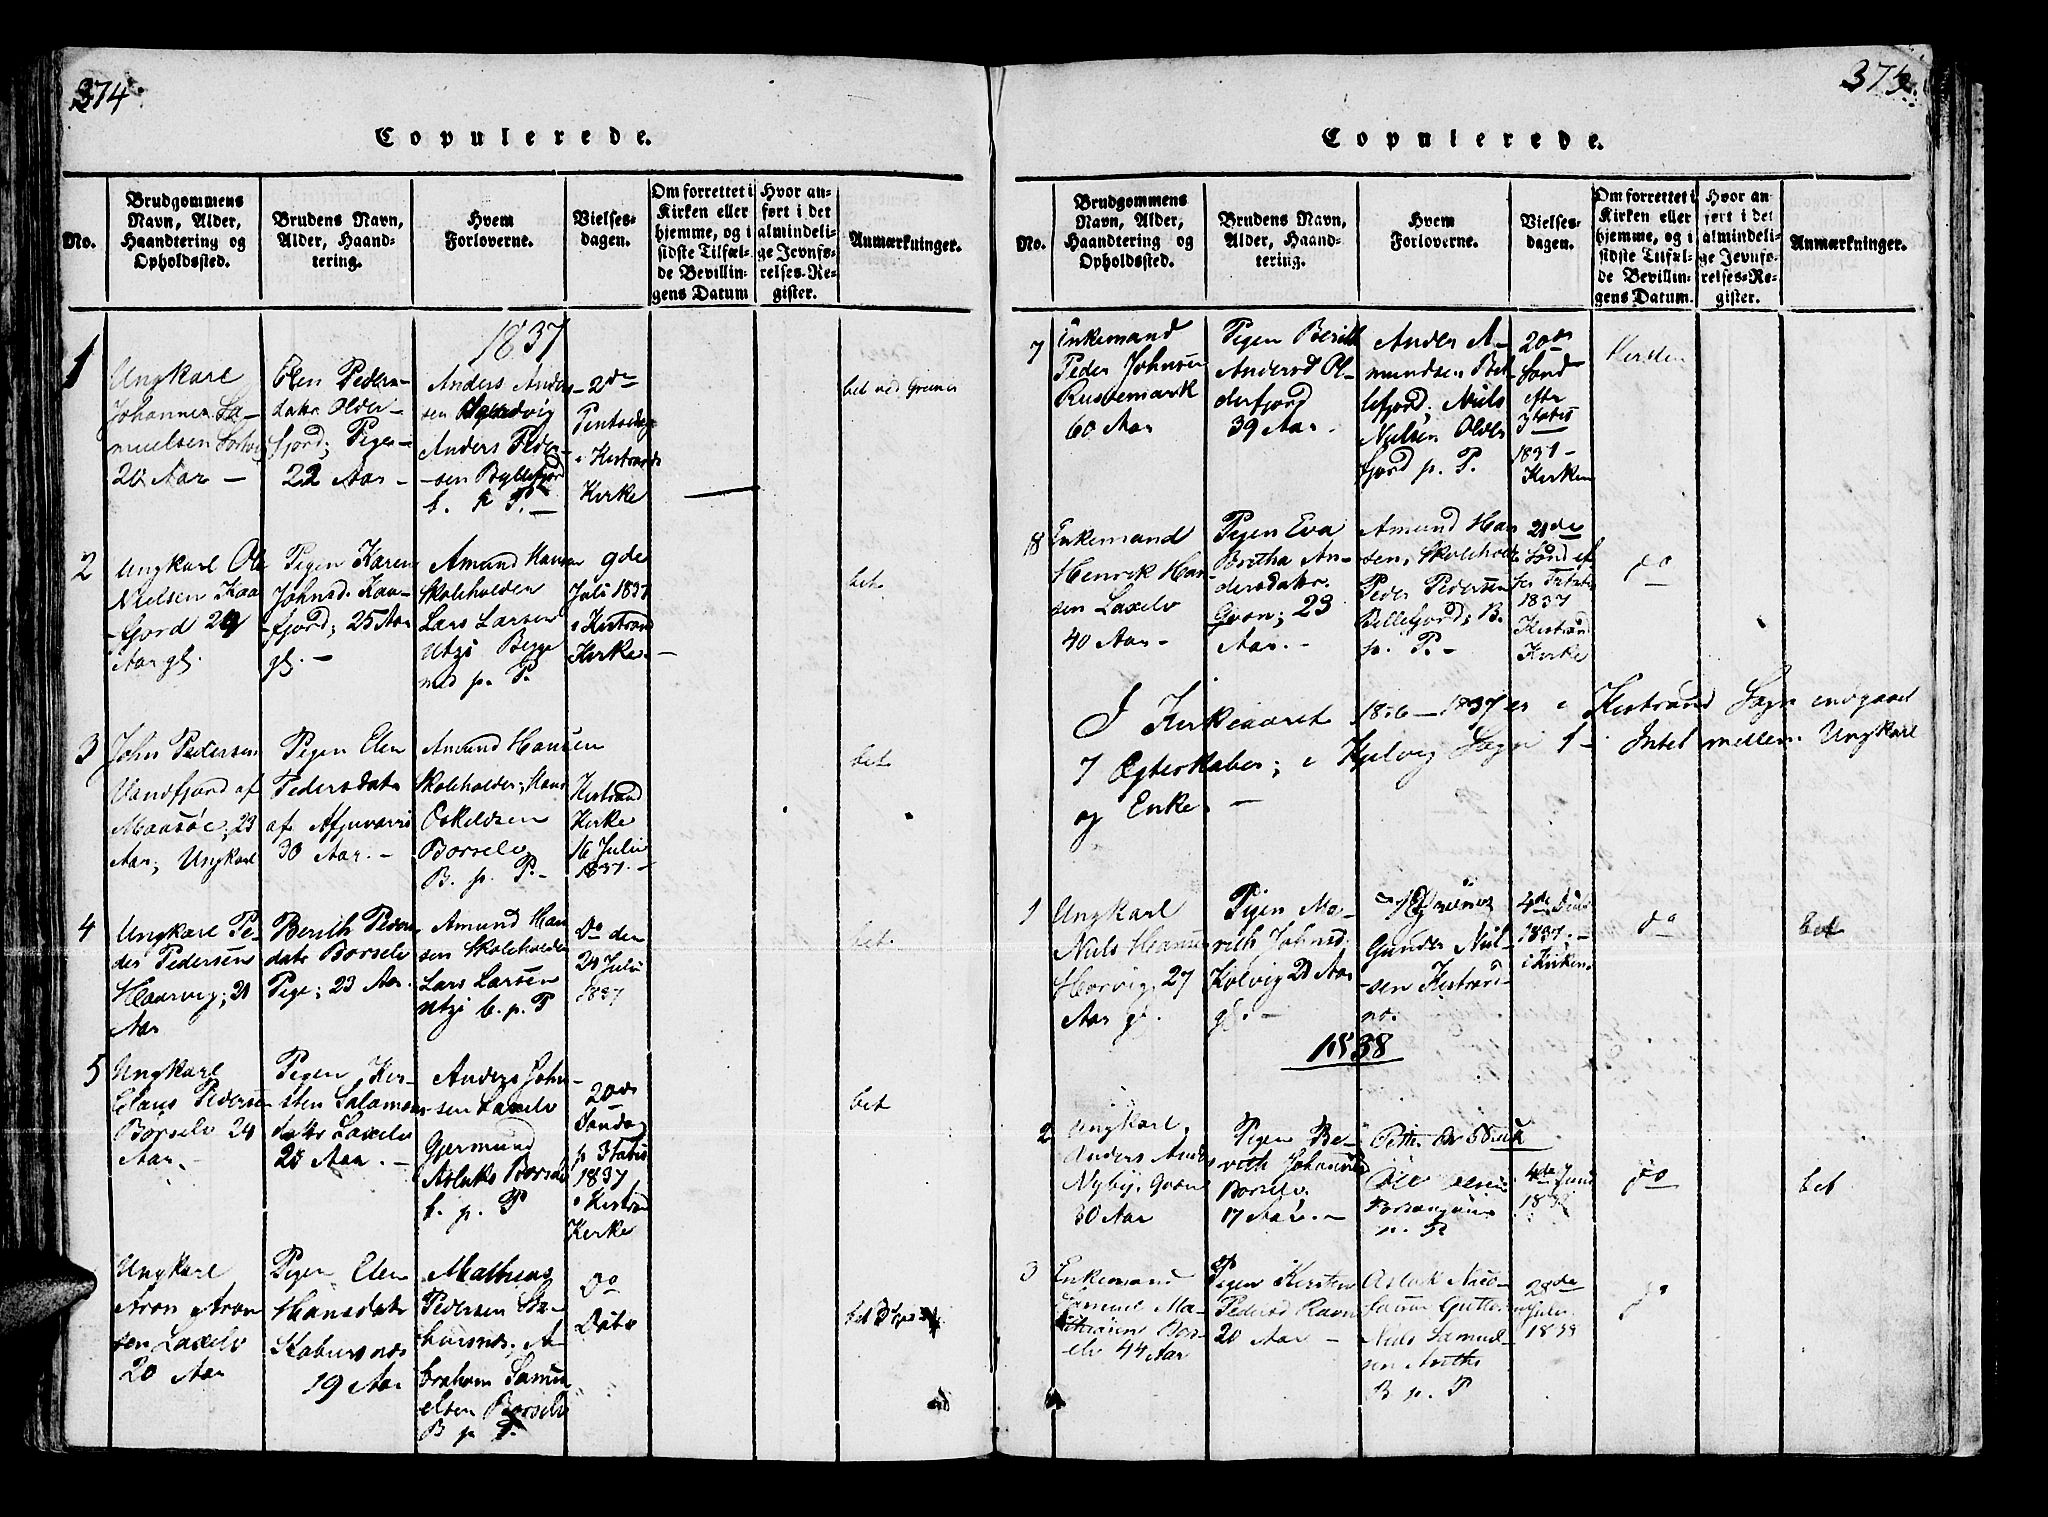 374
Copulerede.
No.
Brudgommens
Navn, Alder,
Haandtering og
Opholdssted.
Brudens Navn,
Alder, Haand-
tering.
Hvem
Forloverne.
Vielses-
dagen.
Om forrettet i
Kirken eller
hjemme, og i
sidste Tilfæl-
de Bevillin-
gens Datum
Hvor an-
ført i det
almindeli-
ge Jevnfø-
relses-Re-
gister.
Anmærkninger.
1837
1
Ungkarl
Johannes Sa-
muelsen
20 Aar -
Elen Peders-
datr Older-
fjord; Pige-
22 Aar -
Anders Ander-
sen
Anders Peder-
sen Byllefjord
b. p P. -
2de
Pentsedag
i Kistrands
Kirke
bet ved
2
Ungkarl Ole
Nielsen Kaa-
fjord 29
Aar gl.
Pigen Karen
Johnsd. Kaa-
fjord; 25 Aar
gl. -
Amund Hansen
Skoleholder
Lars Larsen
Utzi Begge
med p. P.
9de
Juli 1837
i Kistrand
Kirke. -
bet
3
John Pedersen
Vandfjord af
Maasøe; 23
Aar; Ungkarl
Pigen Elen
Pedersdatr
af Afjuvarri
30 Aar. -
Amund Hansen
Skoleholder; Hans
Oskeldsen
Borselv
B. p. P. -
Kistrand
Kirke
16 Julii
1837. -
bet
4
Ungkarl Pe-
der Pedersen
Haarvig; 21
Aar
Berith Peders-
datr Borselv
Pige; 23 Aar.
Amund Han-
sen Skoleholder
Lars Larsen
Utzi b. p. P
Do den
Julii
1837
bet.
5
Ungkarl
Claus Pedersen
Borselv 24
Aar. -
Pigen Kir-
sten Salamons-
datr Laxelv
28 Aar. -
Anders John-
sen Laxelv
Gjermund
Aslaks Borselv
b. p. P
20de
Søndag
p 3tatis
1837
i Kistrand
Kirke
bet
Ungkarl
Aron Aron-
sen Laxelv
20 Aar
Pigen Elen
Hansdatr
Stabursnæs
19 Aar
Mathias
Pedersen Sta-
bursnæs; A-
braham Samu-
elsen Borselv
B p P.
Do
Dato
bet
375.
Copulerede.
No.
Brudgommens
Navn, Alder,
Haandtering og
Opholdssted.
Brudens Navn,
Alder, Haand-
tering.
Hvem
Forloverne.
Vielses-
dagen.
Om forrettet i
Kirken eller
hjemme, og i
sidste Tilfæl-
de Bevillin-
gens Datum.
Hvor an-
ført i det
almindeli-
ge Jevnfø-
relses-Re-
gister.
Anmærkninger.
7
Enkemand
Peder Johnsen
Russemark
60 Aar
Pigen Berith
Andersd Ol-
derfjord
39 Aar.
Anders A-
mundsen Bil-
lefjord; Niels
Nielsen Older
fjord p. P.
20de
Sond
efter
3tatis
1837 -
Kirken
Kirken
8
Enkemand
Henrik Han-
sen Laxelv
40 Aar -
Pigen Eva
Britha An-
dersdatr.
23
Aar. -
Amund Han
sen, Skolehol
Peder Pedersen
Billefjord; B.
p. P. -
21de
Sønd ef
ter
1837
Kistrand
Kirke
do
I Kirkeaaret 1836 - 1837 er i Kistrand Sogn indgaaet
7 Ægteskaber; i Kjelvig Sogn 1 - Intet mellem Ungkarl
og Enke. -
1
Ungkarl
Niels Hansen
Horvig, 27
Aar gl.
Pigen Ma-
rith Johnsd.
Kolvig 21 Aar
gl. -
Gunder Niel-
sen Kistrand
4de
1837. -
i Kirken
do
bet
1838
2
Ungkarl,
Anders Anders
Nyby,
30 Aar
Pigen Be-
rith Johannesd
Borselv,
17 Aar. -
Ole
p. P.
4de Juni
1838
do
bet
3
Enkemand
Samuel Ma-
thisen Bor-
elv 44 Aar
Pigen Kirsten
Pedersd Ravn
20 Aar -
Aslak Nico-
Niels Samuel
sen
B p. P
28de
Juli
1838
do